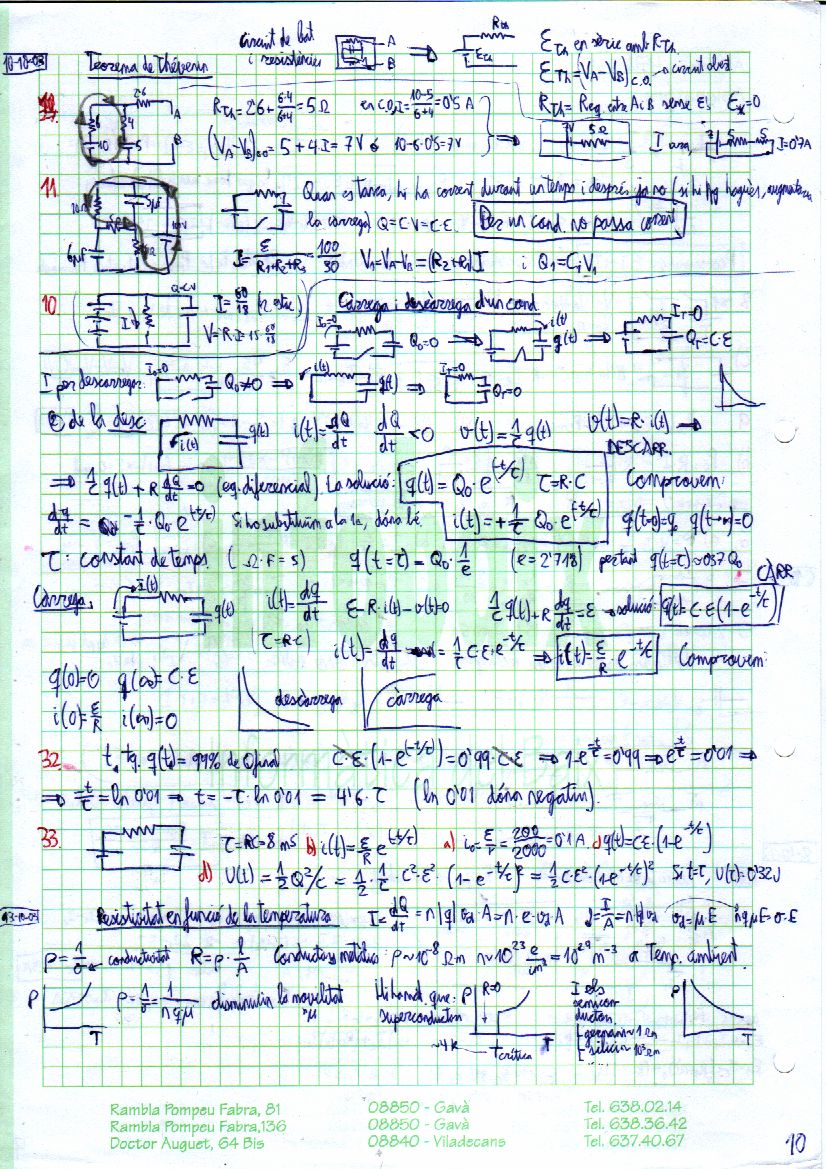 10-10-03 Teorema de Thévenin Circuit de bat i resistències A B ⇒ Rth ETh ETh en sèrie amb RTh.
ETh = (VA-VB)c.o. → circuit obert
RTh = Req entre A i B sense E's
2'6 A 6 4 10 5 B RTh = 2'6 + 6·4/6+4 = 5 Ω en c.o. I = 10-5/6+4 = 0'5 A
(VA-VB)c.o = 5 + 4I = 7V ó 10-6·0'5=7V ⇒ 7V 5Ω I ara, I=0'7A
11. Quan es tanca, hi ha corrent durant un temps i després ja no (si hi hagués, augmentaria
la càrrega) Q=C·V=C·E. Per un cond. no passa corrent
5μF 6μF I = E/R1+R2+R3 = 100/30 V1=VA-VB=(R2+R1)I i Q1=C1V1
10 Q=CV I = 60/18 (R estac) V=R·I=15·60/18
Càrrega i descàrrega d'un cond.
I0=0 Q0=0 ⇒ i(t) q(t) ⇒ IT=0 QT=C·E
I per descarregar: I0=0 Q0≠0 ⇒ i(t) q(t) ⇒ IT=0 QT=0
de la desc: i(t) q(t) i(t)=dQ/dt dQ/dt<0 v(t)=1/C q(t) v(t)=R·i(t) →
⇒ 1/C q(t) + R dQ/dt = 0 (eq. diferencial). La solució: q(t) = Q0·e^(-t/τ) τ=R·C DESCARR. Comprovem:
dq/dt = -1/τ·Q0·e^(-t/τ) Si ho substituïm a la 1a, dóna bé. i(t)=+1/τ Q0·e^(-t/τ) q(t=0)=q0 q(t→∞)=0
τ: constant de temps. (Ω·F=s) q(t=τ) = Q0·1/e (e=2'718) per tant q(t=τ)≈0'37 Q0
Càrrega: i(t) q(t) i(t)=dq/dt E-R·i(t)-v(t)=0 1/C q(t)+R dq/dt=E → solució: q(t)=C·E(1-e^-t/τ) CARR
(τ=R·C) i(t)=dq/dt = 1/τ C·E·e^-t/τ ⇒ i(t)=E/R·e^-t/τ Comprovem:
q(0)=0 q(∞)=C·E
i(0)=E/R i(∞)=0 descàrrega càrrega
32. t tq. q(t)=99% de Qfinal C·E·(1-e^(-t/τ))=0'99·C·E ⇒ 1-e^-t/τ=0'99 ⇒ e^-t/τ=0'01 ⇒
⇒ -t/τ = ln 0'01 ⇒ t = -τ·ln 0'01 = 4'6·τ (ln 0'01 dóna negatiu).
33. τ=RC=8 mS b) i(t)=E/R e^(-t/τ) a) i0=E/r=200/2000=0'1A. c) q(t)=CE·(1-e^-t/τ)
d) U(t) = 1/2 Q²/C = 1/2·1/C·C²·E²·(1-e^-t/τ)² = 1/2 C·E²·(1-e^-t/τ)² Si t=τ, U(τ)=0'32J
13-10-03 Resistivitat en funció de la temperatura I=dQ/dt=n|q|vd·A=n·e·vd·A J=I/A=n·q·vd vd=μ·E nqμE=σ·E
ρ=1/σ ← conductivitat R=ρ·l/A Conductors metàl·lics: ρ~10^-8 Ωm n~10^23 e/cm³=10^29 m^-3 a Temp. ambient.
ρ T ρ=1/σ=1/nqμ disminuïm la movilitat "μ" Hi ha mat. que: superconductors ρ R=0 ~4K Tcrítica T I els semiconductors germani~1 Ωm silici~10³Ωm ..... ρ T
Rambla Pompeu Fabra, 81 08850 - Gavà Tel. 638.02.14
Rambla Pompeu Fabra,136 08850 - Gavà Tel. 638.36.42
Doctor Auguet, 64 Bis 08840 - Viladecans Tel. 637.40.67
10